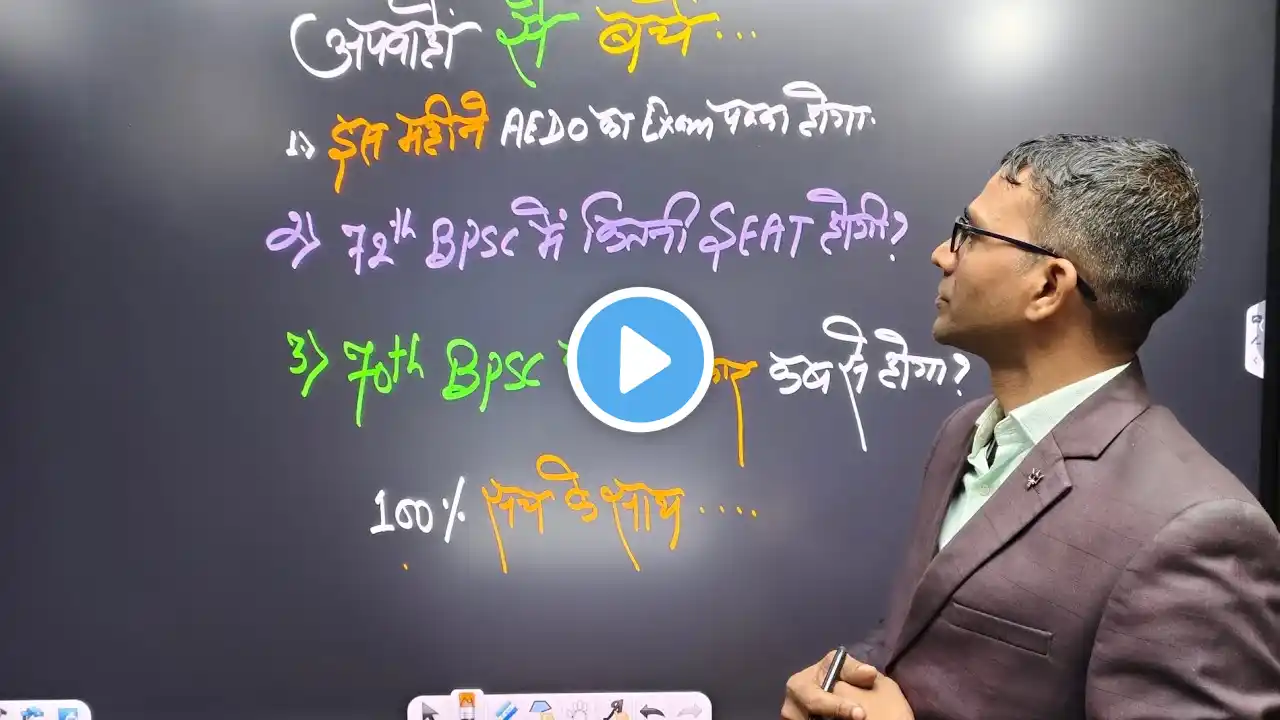 अफवाहों से बचें...
1) इस महीने AEDO का Exam पक्का होगा.
2) 72th BPSC में कितनी SEAT होगी?
3) 70th BPSC कब से होगा?
100% सच के साथ ....